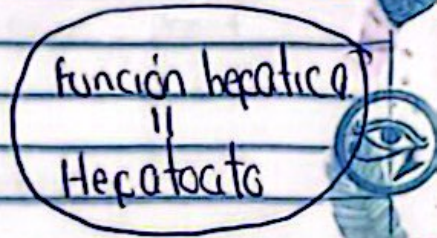 función hepática
||
Hepatocito